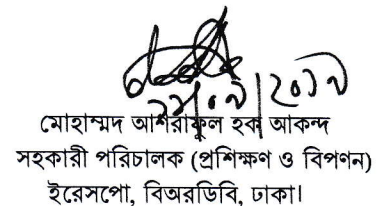 মোহাম্মদ আশরাফুল হক আকন্দ
সহকারী পরিচালক (প্রশিক্ষণ ও বিপণন)
ইরেসপো, বিআরডিবি, ঢাকা।